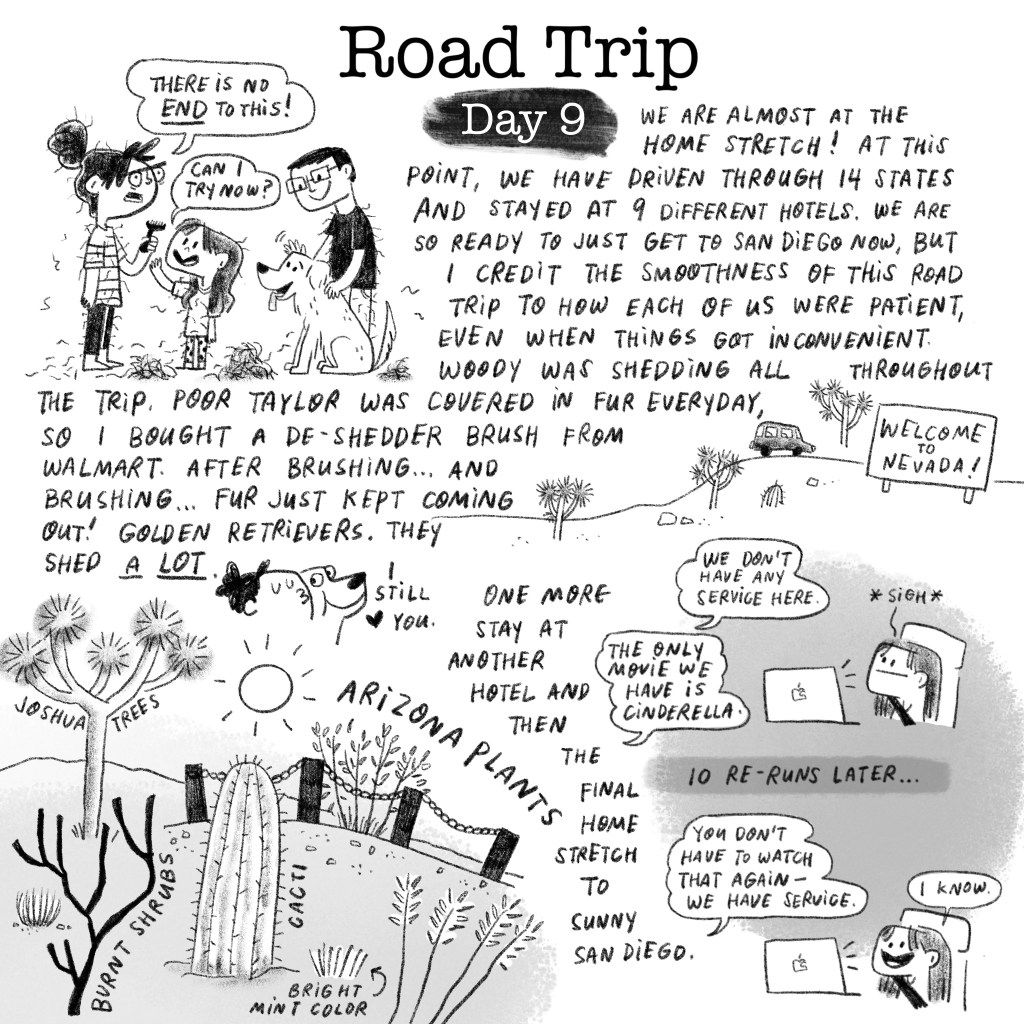 Road Trip
Day 9
THERE IS NO
END TO THIS!
CAN I
TRY NOW?
WE ARE ALMOST AT THE
HOME STRETCH! AT THIS
POINT, WE HAVE DRIVEN THROUGH 14 STATES
AND STAYED AT 9 DIFFERENT HOTELS. WE ARE
SO READY TO JUST GET TO SAN DIEGO NOW, BUT
I CREDIT THE SMOOTHNESS OF THIS ROAD
TRIP TO HOW EACH OF US WERE PATIENT,
EVEN WHEN THINGS GOT INCONVENIENT.
WOODY WAS SHEDDING ALL THROUGHOUT
THE TRIP. POOR TAYLOR WAS COVERED IN FUR EVERYDAY,
SO I BOUGHT A DE-SHEDDER BRUSH FROM
WALMART. AFTER BRUSHING... AND
BRUSHING... FUR JUST KEPT COMING
OUT! GOLDEN RETRIEVERS. THEY
SHED A LOT.
I
STILL
♥ YOU.
WELCOME
TO
NEVADA!
ONE MORE
STAY AT
ANOTHER
HOTEL AND
THEN
THE
FINAL
HOME
STRETCH
TO
SUNNY
SAN DIEGO.
WE DON'T
HAVE ANY
SERVICE HERE.
THE ONLY
MOVIE WE
HAVE IS
CINDERELLA.
*SIGH*
10 RE-RUNS LATER...
YOU DON'T
HAVE TO WATCH
THAT AGAIN—
WE HAVE SERVICE.
I KNOW.
ARIZONA PLANTS
JOSHUA TREES
BURNT SHRUBS
CACTI
BRIGHT
MINT COLOR